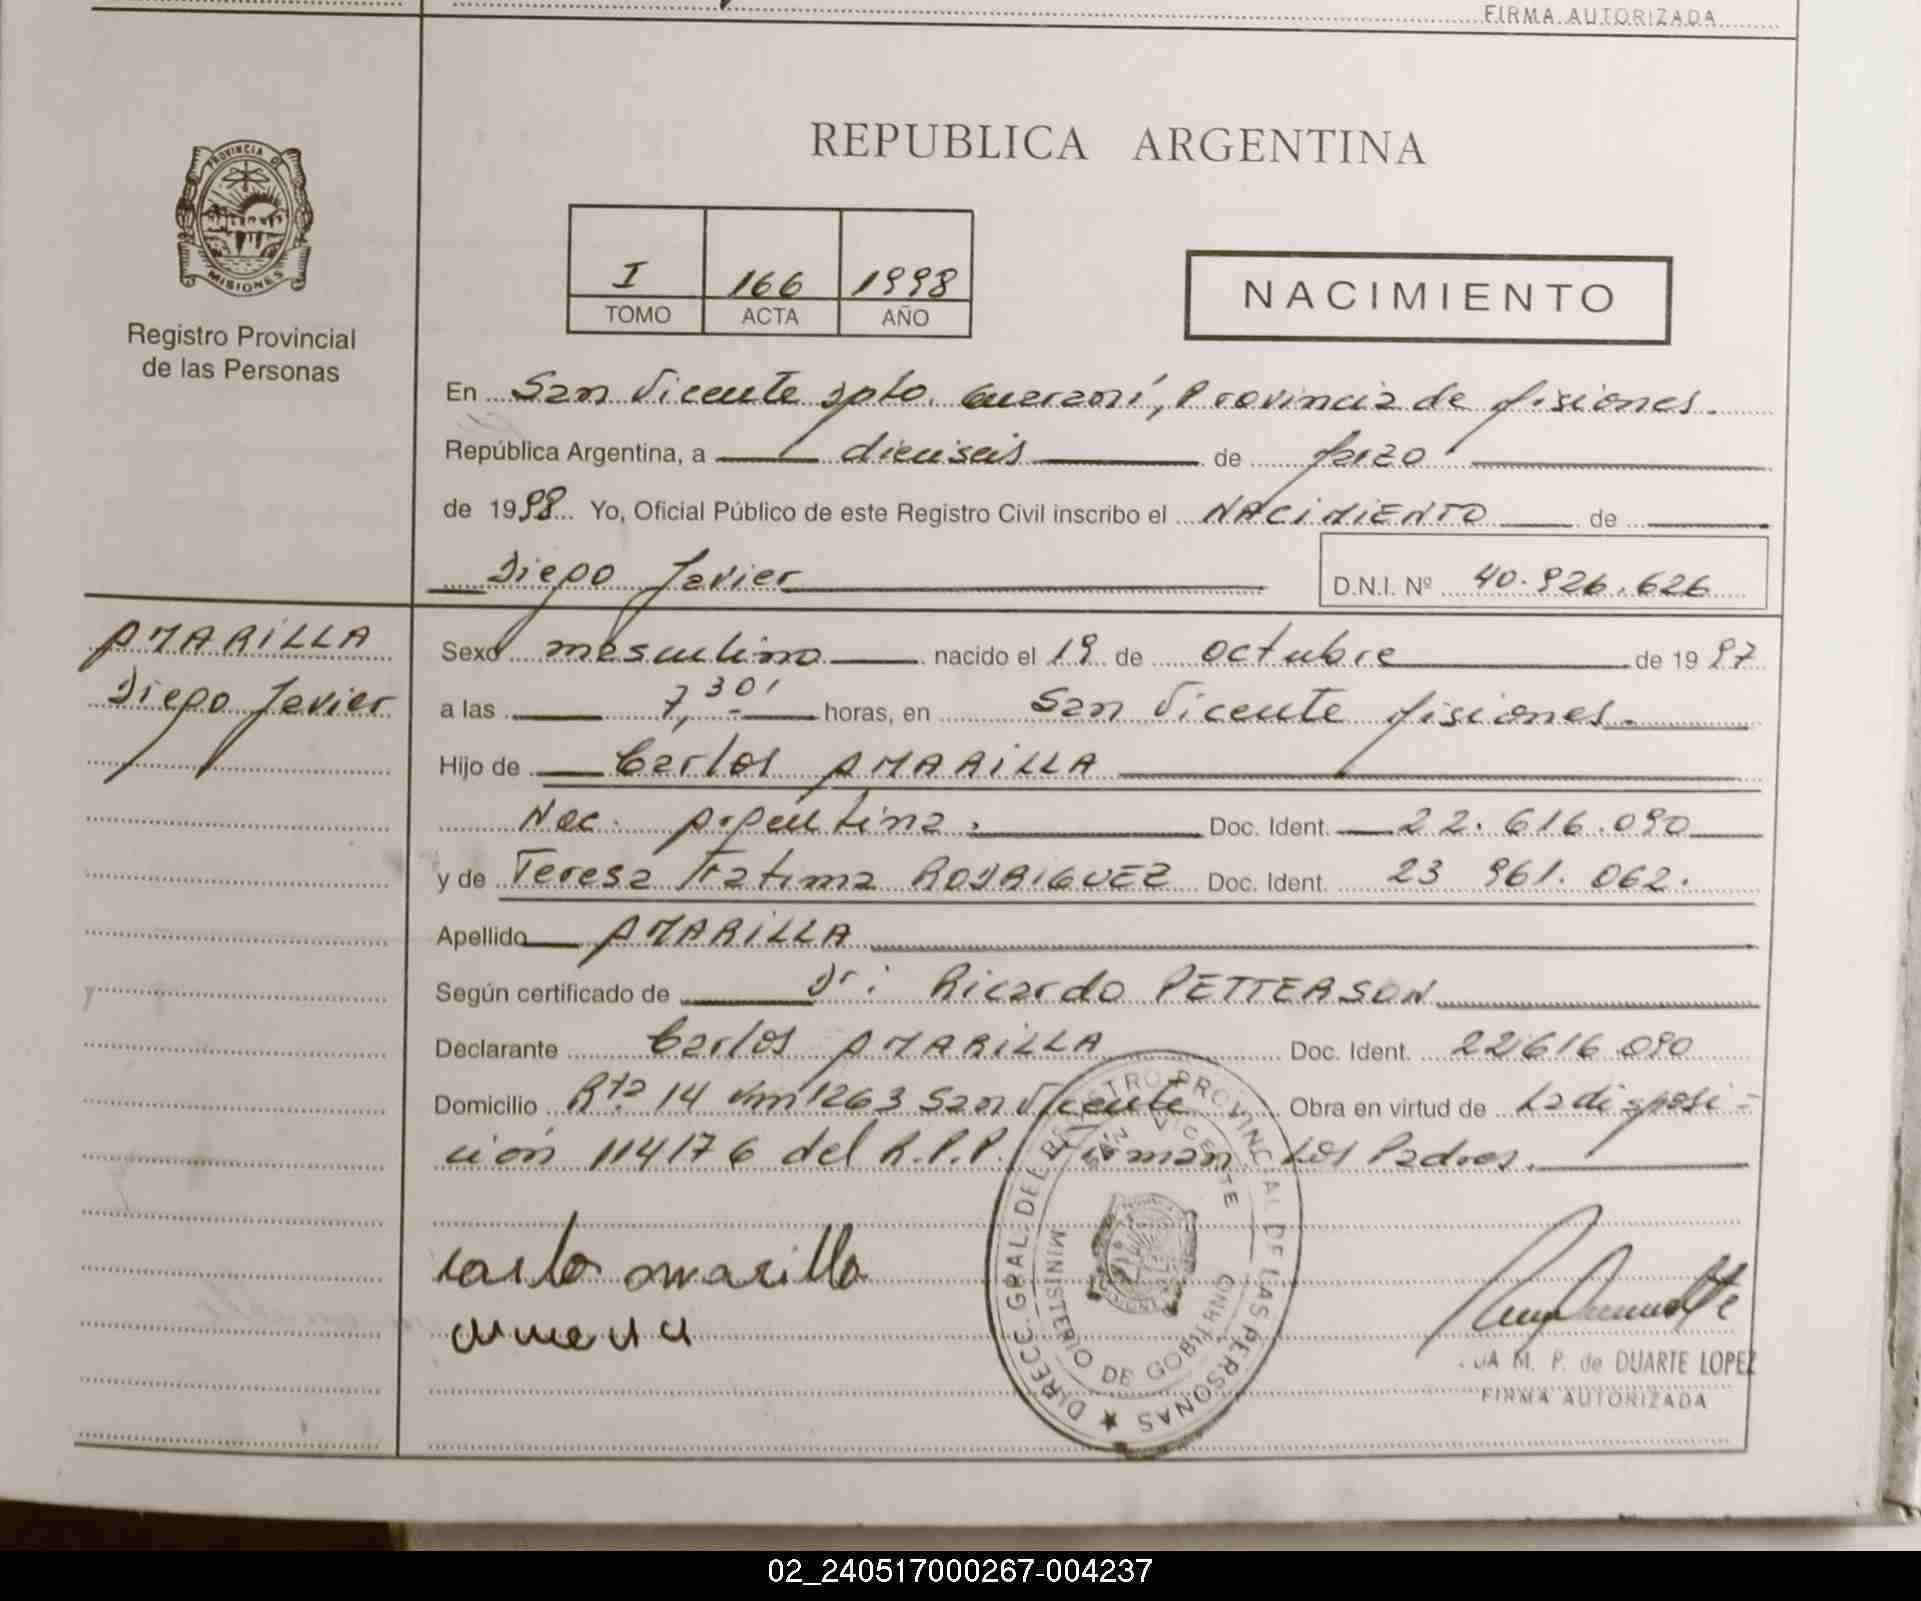 FIRMA AUTORIZADA
PROVINCIA DE
MISIONES
Registro Provincial
de las Personas
REPUBLICA ARGENTINA
I 166 1998
TOMO ACTA AÑO
NACIMIENTO
En San Vicente Dpto. Guaraní, Provincia de Misiones.
República Argentina, a dieciseis de Marzo
de 1998 Yo, Oficial Público de este Registro Civil inscribo el NACIMIENTO de
Diego Javier D.N.I. Nº 40.926.626
AMARILLA
Diego Javier
Sexo masculino nacido el 19 de octubre de 1997
a las 7,30' horas, en San Vicente Misiones.
Hijo de Carlos AMARILLA
Nac. Argentina. Doc. Ident. 22.616.090
y de Teresa Fratima RODRIGUEZ Doc. Ident. 23 961. 062.
Apellido AMARILLA
Según certificado de Dr: Ricardo PETTERSON
Declarante Carlos AMARILLA Doc. Ident. 22616090
Domicilio Rta 14 Km 1263 San Vicente Obra en virtud de La disposi-
ción 114176 del R.P.P. Firman Los Padres.
Carlo amarilla
DIRECC. GRAL. DEL REGISTRO PROVINCIAL DE LAS PERSONAS
SAN VICENTE
MINISTERIO DE GOBIERNO
M. P. de DUARTE LOPEZ
FIRMA AUTORIZADA
02_240517000267-004237